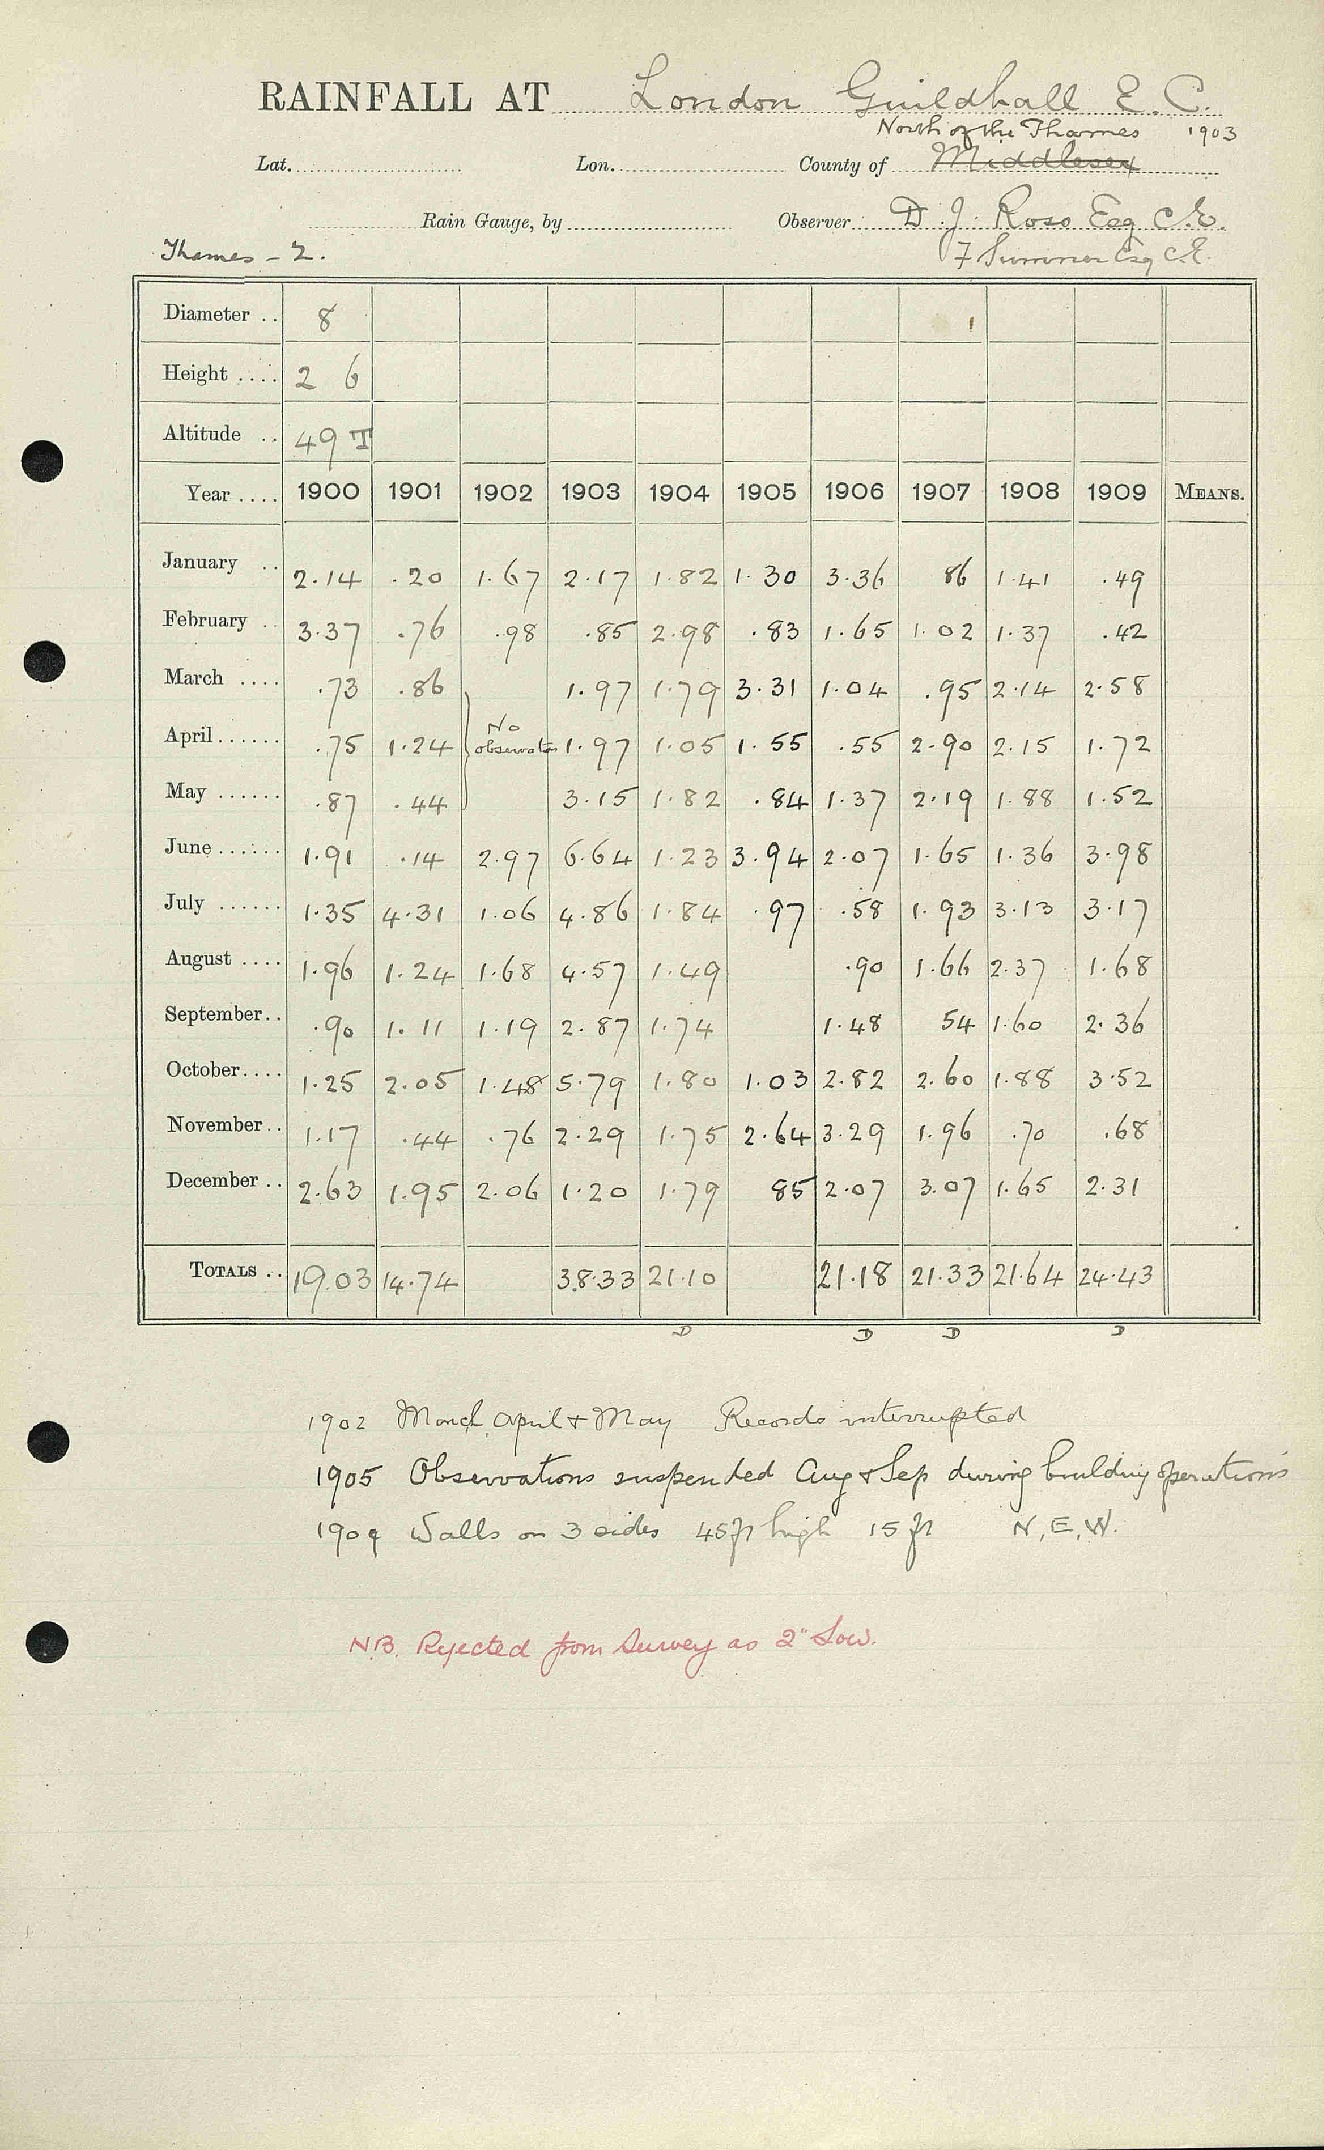 RAINFALL AT London Guildhall E.C.
North of the Thames 1903
Lat. Lon. County of Middlesex
Rain Gauge, by Observer D. J. Ross Esq C.E.
Thames - 2. F Sumner Esq C.E.
Diameter .. 8
Height .... 2 6
Altitude .. 49 T
Year .... 1900 1901 1902 1903 1904 1905 1906 1907 1908 1909 MEANS.
January .. 2.14 .20 1.67 2.17 1.82 1.30 3.36 86 1.41 .49
February .. 3.37 .76 .98 .85 2.98 .83 1.65 1.02 1.37 .42
March .... .73 .86 1.97 1.79 3.31 1.04 .95 2.14 2.58
April...... .75 1.24 No observatn 1.97 1.05 1.55 .55 2.90 2.15 1.72
May ...... .87 .44 3.15 1.82 .84 1.37 2.19 1.88 1.52
June...... 1.91 .14 2.97 6.64 1.23 3.94 2.07 1.65 1.36 3.98
July ...... 1.35 4.31 1.06 4.86 1.84 .97 .58 1.93 3.13 3.17
August .... 1.96 1.24 1.68 4.57 1.49 .90 1.66 2.37 1.68
September.. .90 1.11 1.19 2.87 1.74 1.48 54 1.60 2.36
October.... 1.25 2.05 1.48 5.79 1.80 1.03 2.82 2.60 1.88 3.52
November.. 1.17 .44 .76 2.29 1.75 2.64 3.29 1.96 .70 .68
December .. 2.63 1.95 2.06 1.20 1.79 85 2.07 3.07 1.65 2.31
TOTALS .. 19.03 14.74 38.33 21.10 21.18 21.33 21.64 24.43
D D D D
1902 March, April & May Records interrupted
1905 Observations suspended Aug & Sep during building operations
1909 Walls on 3 sides 45ft high 15 ft N, E, W.
N.B. Rejected from Survey as 2" Low.